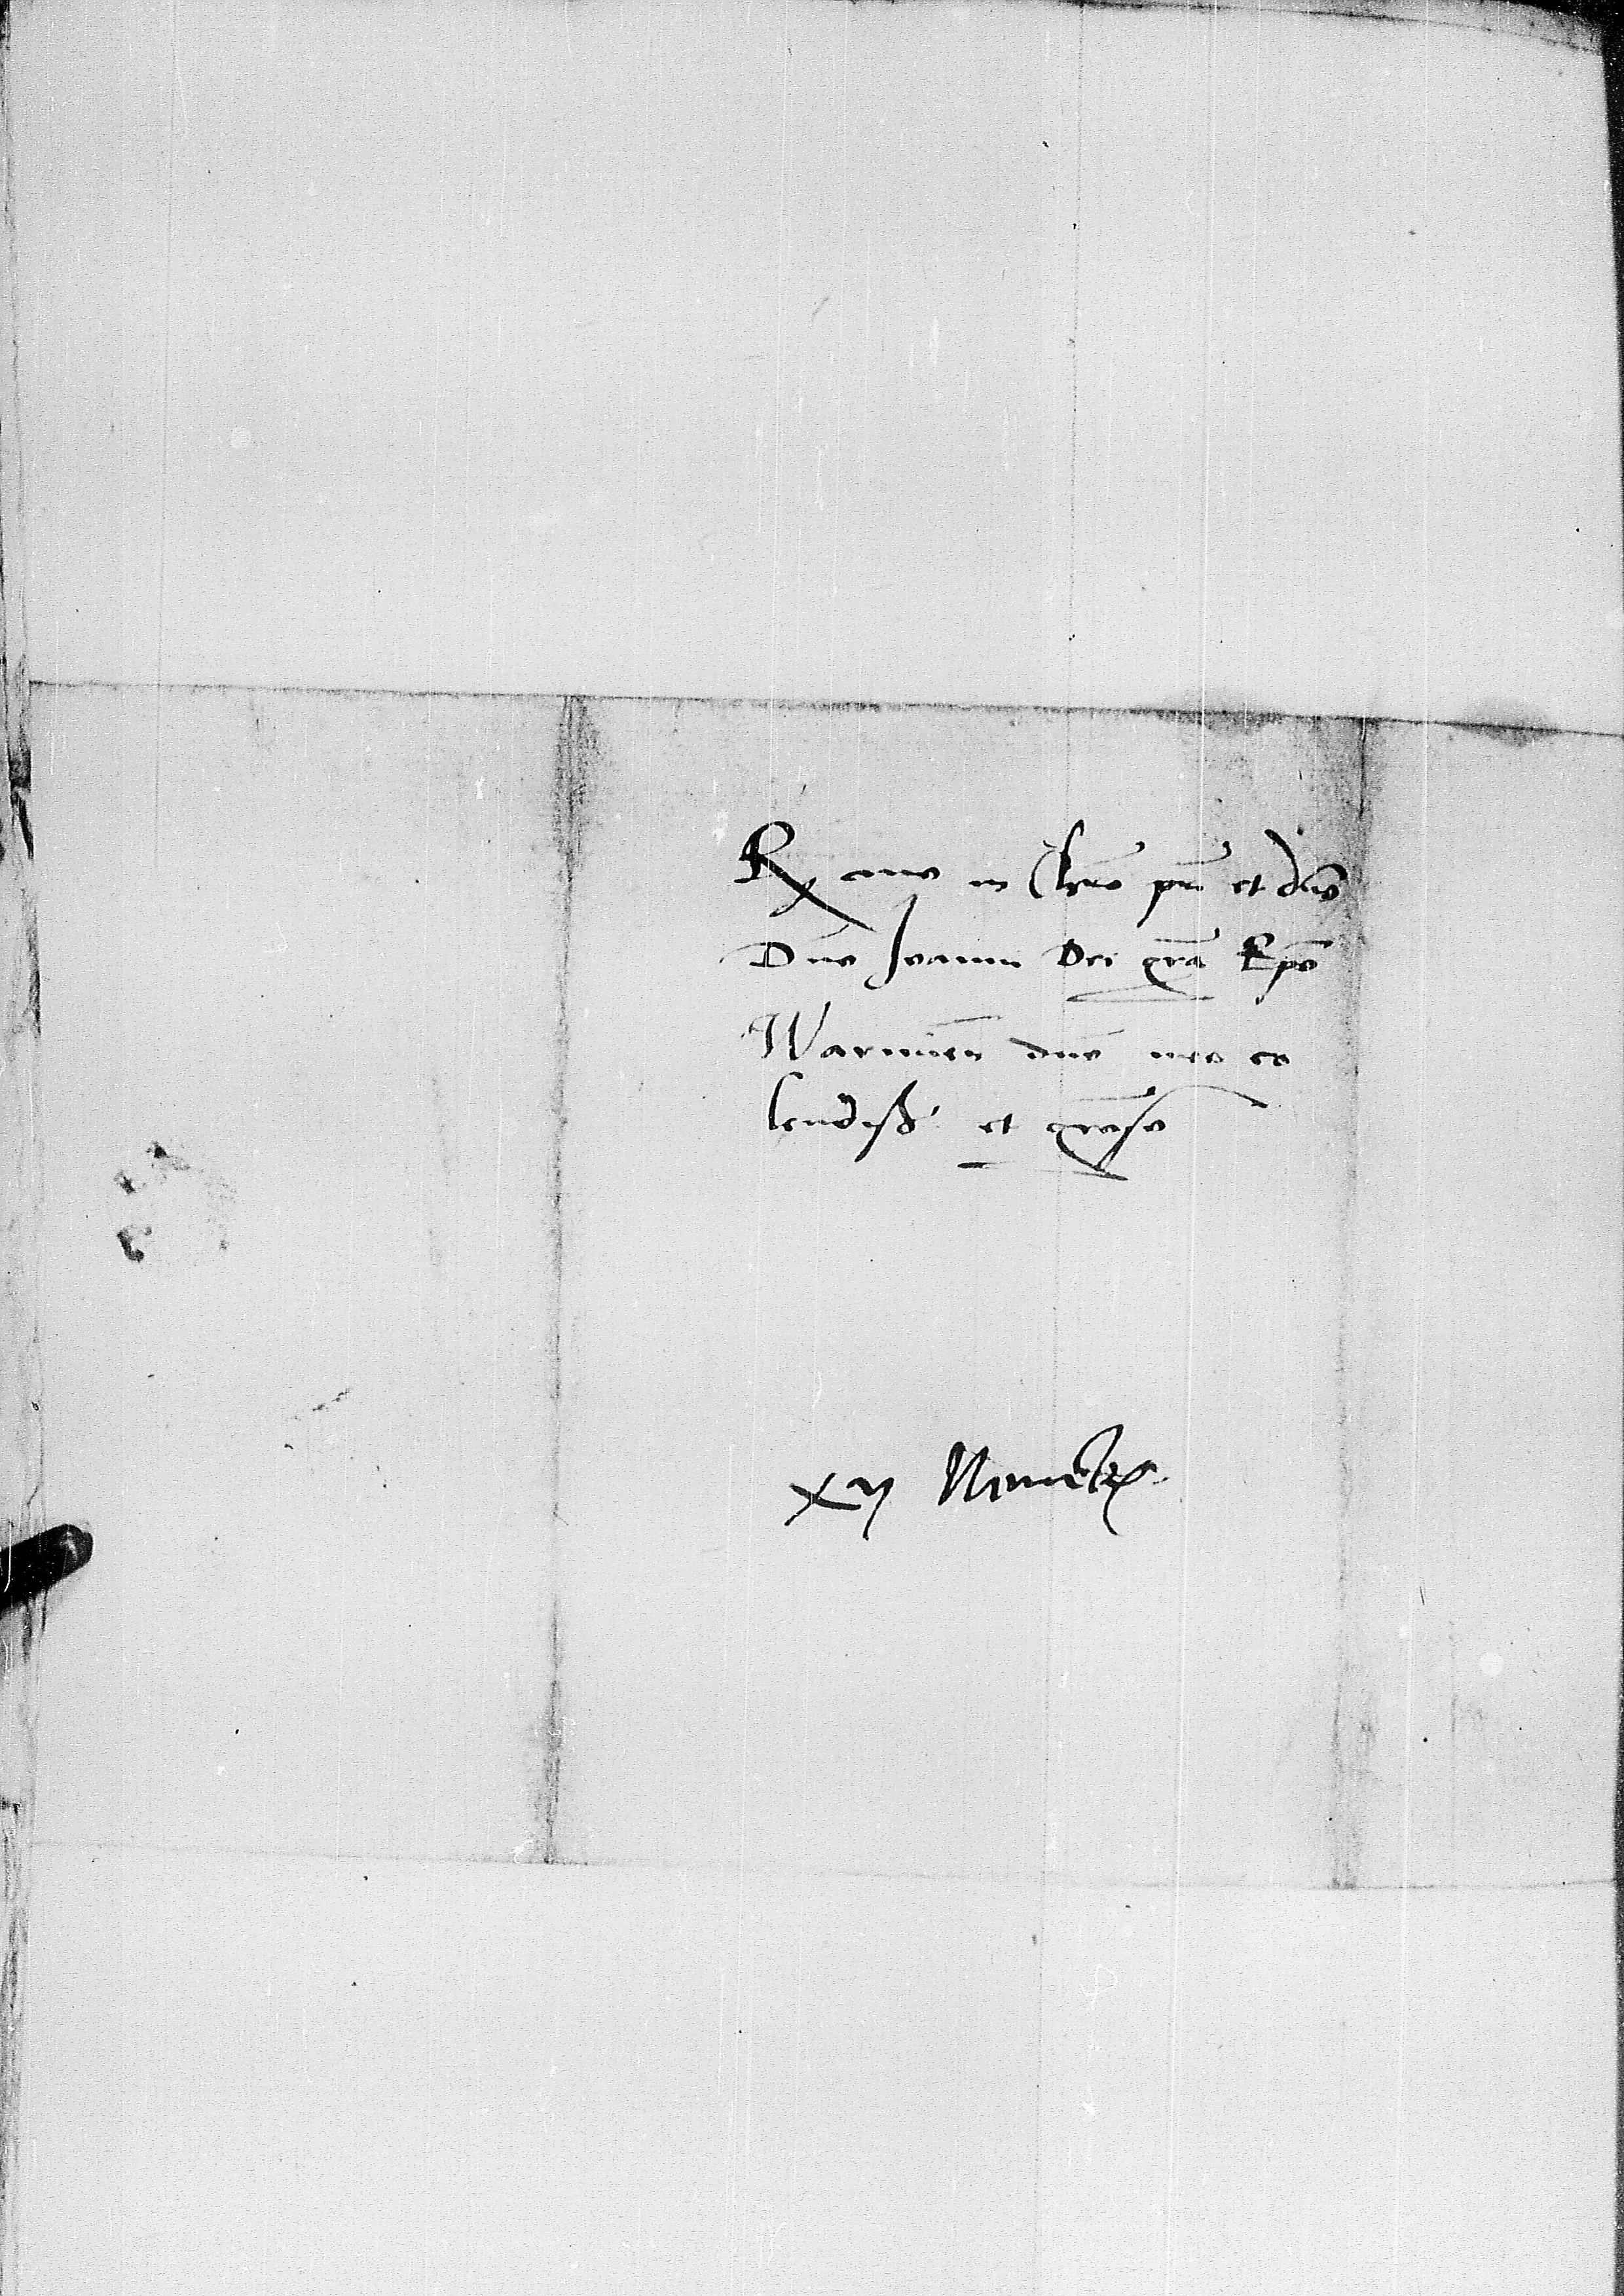 R. imo in Chro pri et dno
Dno Joanni Dei gra Epo
Warmien dno meo co
lendiss et graso